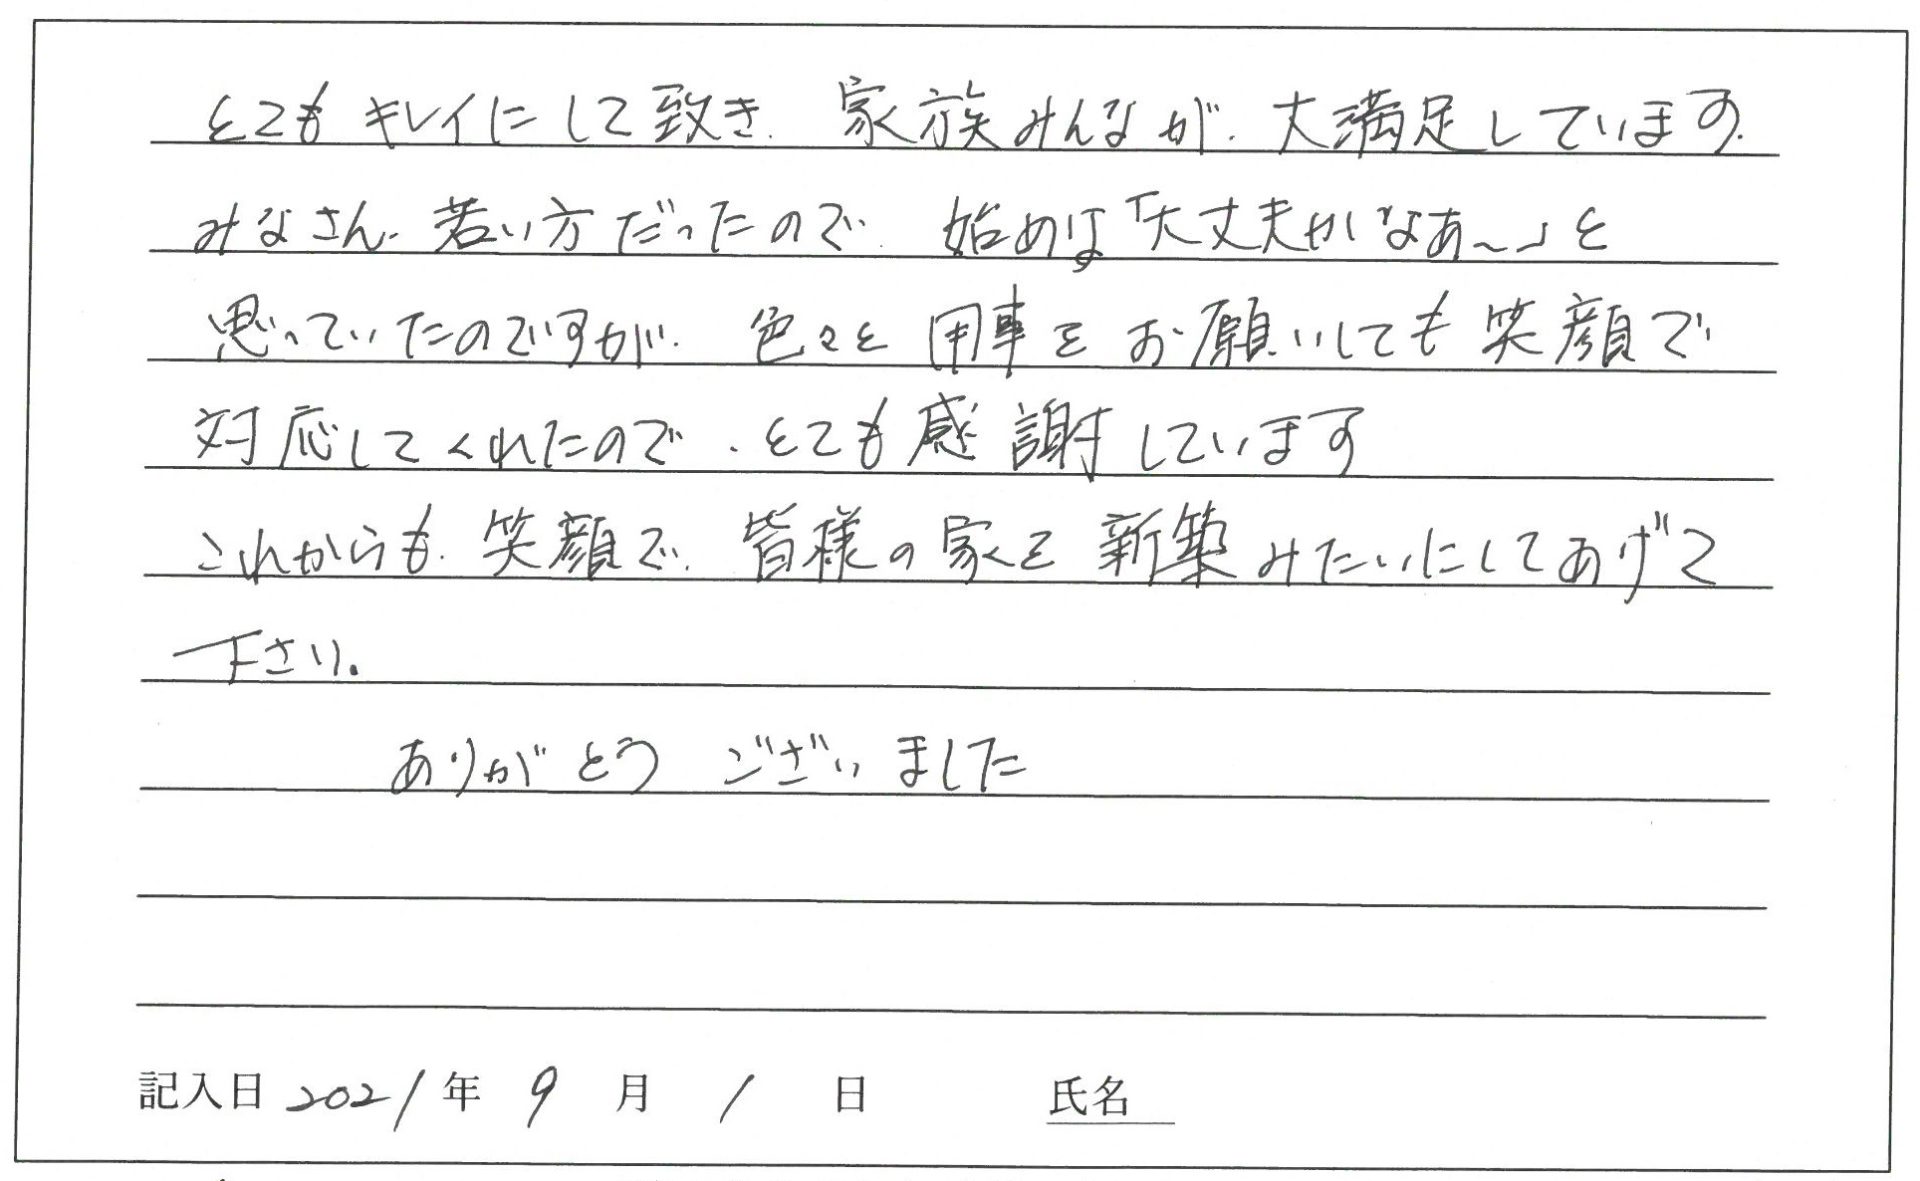 とてもキレイにして致き、家族みんなが、大満足しています。
みなさん、若い方だったので、始めは「大丈夫かなあ～」と
思っていたのですが、色々と用事をお願いしても笑顔で
対応してくれたので、とても感謝しています
これからも、笑顔で、皆様の家を新築みたいにしてあげて
下さい。
ありがとうございました
記入日 2021年 9月 1日 氏名